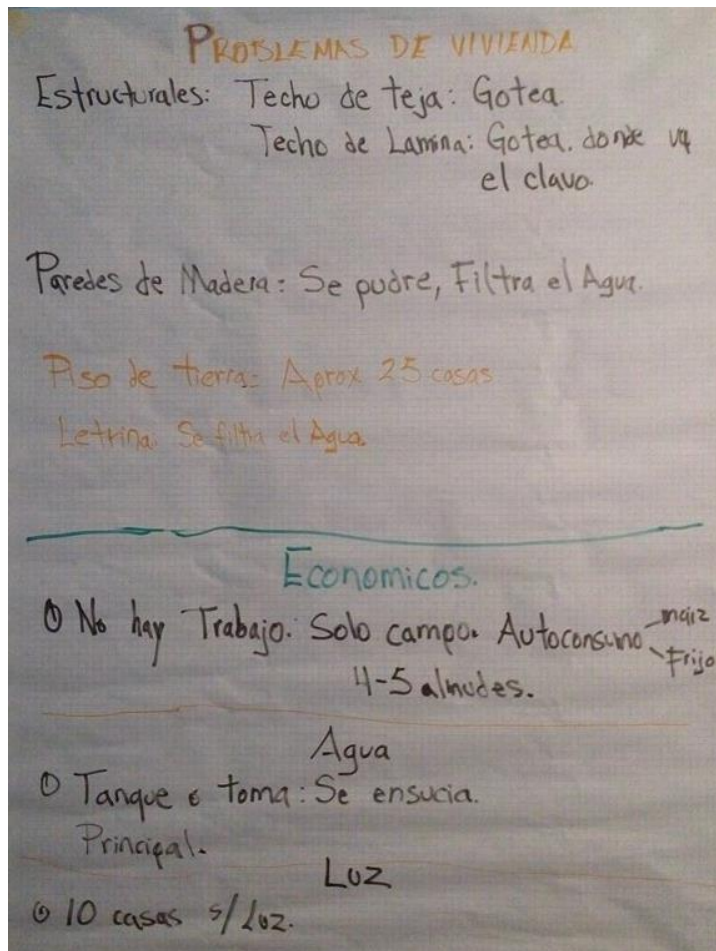 PROBLEMAS DE VIVIENDA
Estructurales: Techo de teja: Gotea.
Techo de Lamina: Gotea. donde va
el clavo.
Paredes de Madera: Se pudre, Filtra el Agua.
Piso de tierra: Aprox 25 casas
Letrina: Se filtra el Agua.
Economicos.
No hay Trabajo. Solo campo. Autoconsumo maiz
Frijo
4-5 almudes.
Agua
Tanque o toma: Se ensucia.
Principal.
Luz
10 casas s/Luz.